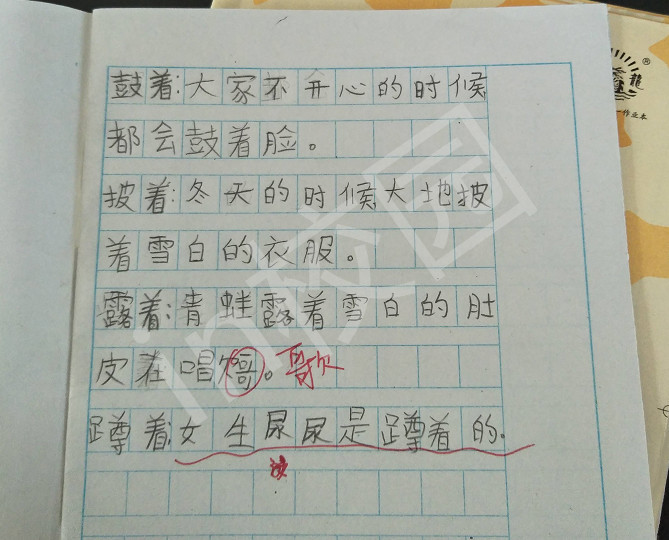 鼓着:大家不开心的时候
都会鼓着脸。
披着:冬天的时候大地披
着雪白的衣服。
露着:青蛙露着雪白的肚
皮在唱哥。歌
蹲着:女生尿尿是蹲着的.
in校园
龍
®
一作业本